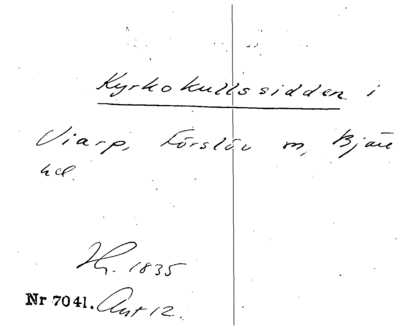 Kyrkokullssidden i
Viarp, Förslöv m, Bjäre
hd.
Hr. 1835
Nr 7041. Ant 12.